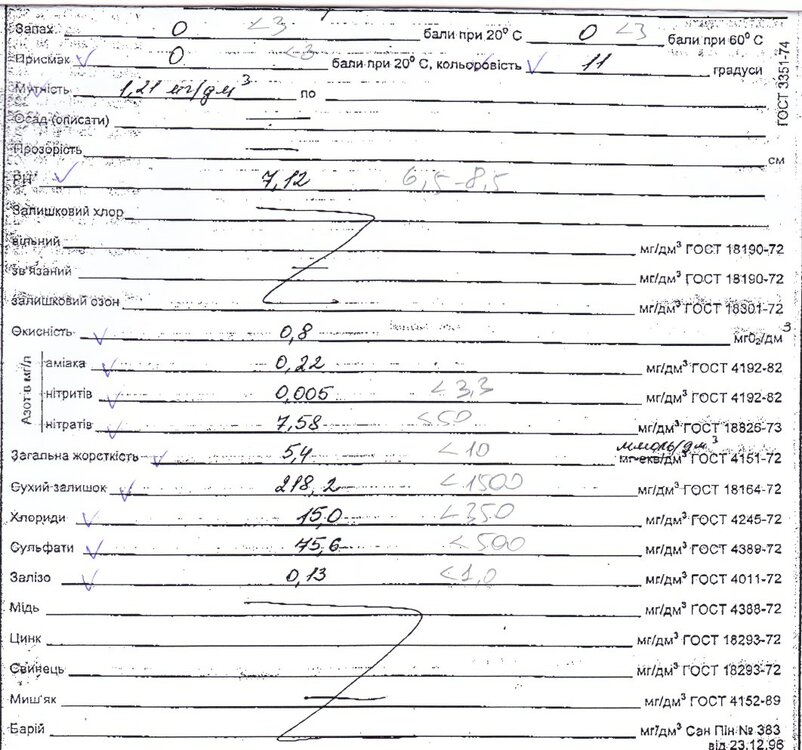 Запах 0 <3 бали при 20⁰ С 0 <3 бали при 60⁰ С
Присмак 0 <3 бали при 20⁰ С, кольоровість 11 градуси
ГОСТ 3351-74
Мутність 1,21 мг/дм³ по
Осад (описати) —
Прозорість — см
РН 7,12 6,5-8,5
Залишковий хлор
вільний мг/дм³ ГОСТ 18190-72
зв'язаний мг/дм³ ГОСТ 18190-72
залишковий озон мг/дм³ ГОСТ 18301-72
Окисність 0,8 мгО₂/дм³
Азот в мг/л
аміака 0,22 мг/дм³ ГОСТ 4192-82
нітритів 0,005 <3,3 мг/дм³ ГОСТ 4192-82
нітратів 7,58 <50 мг/дм³ ГОСТ 18826-73
ммоль/дм³
Загальна жорсткість 5,4 <10 мг-екв/дм³ ГОСТ 4151-72
Сухий залишок 218,2 <1500 мг/дм³ ГОСТ 18164-72
Хлориди 15,0 <350 мг/дм³ ГОСТ 4245-72
Сульфати 75,6 <500 мг/дм³ ГОСТ 4389-72
Залізо 0,13 <1,0 мг/дм³ ГОСТ 4011-72
Мідь мг/дм³ ГОСТ 4388-72
Цинк мг/дм³ ГОСТ 18293-72
Свинець мг/дм³ ГОСТ 18293-72
Миш'як — мг/дм³ ГОСТ 4152-89
Барій мг/дм³ Сан Пін № 383
від 23.12.96